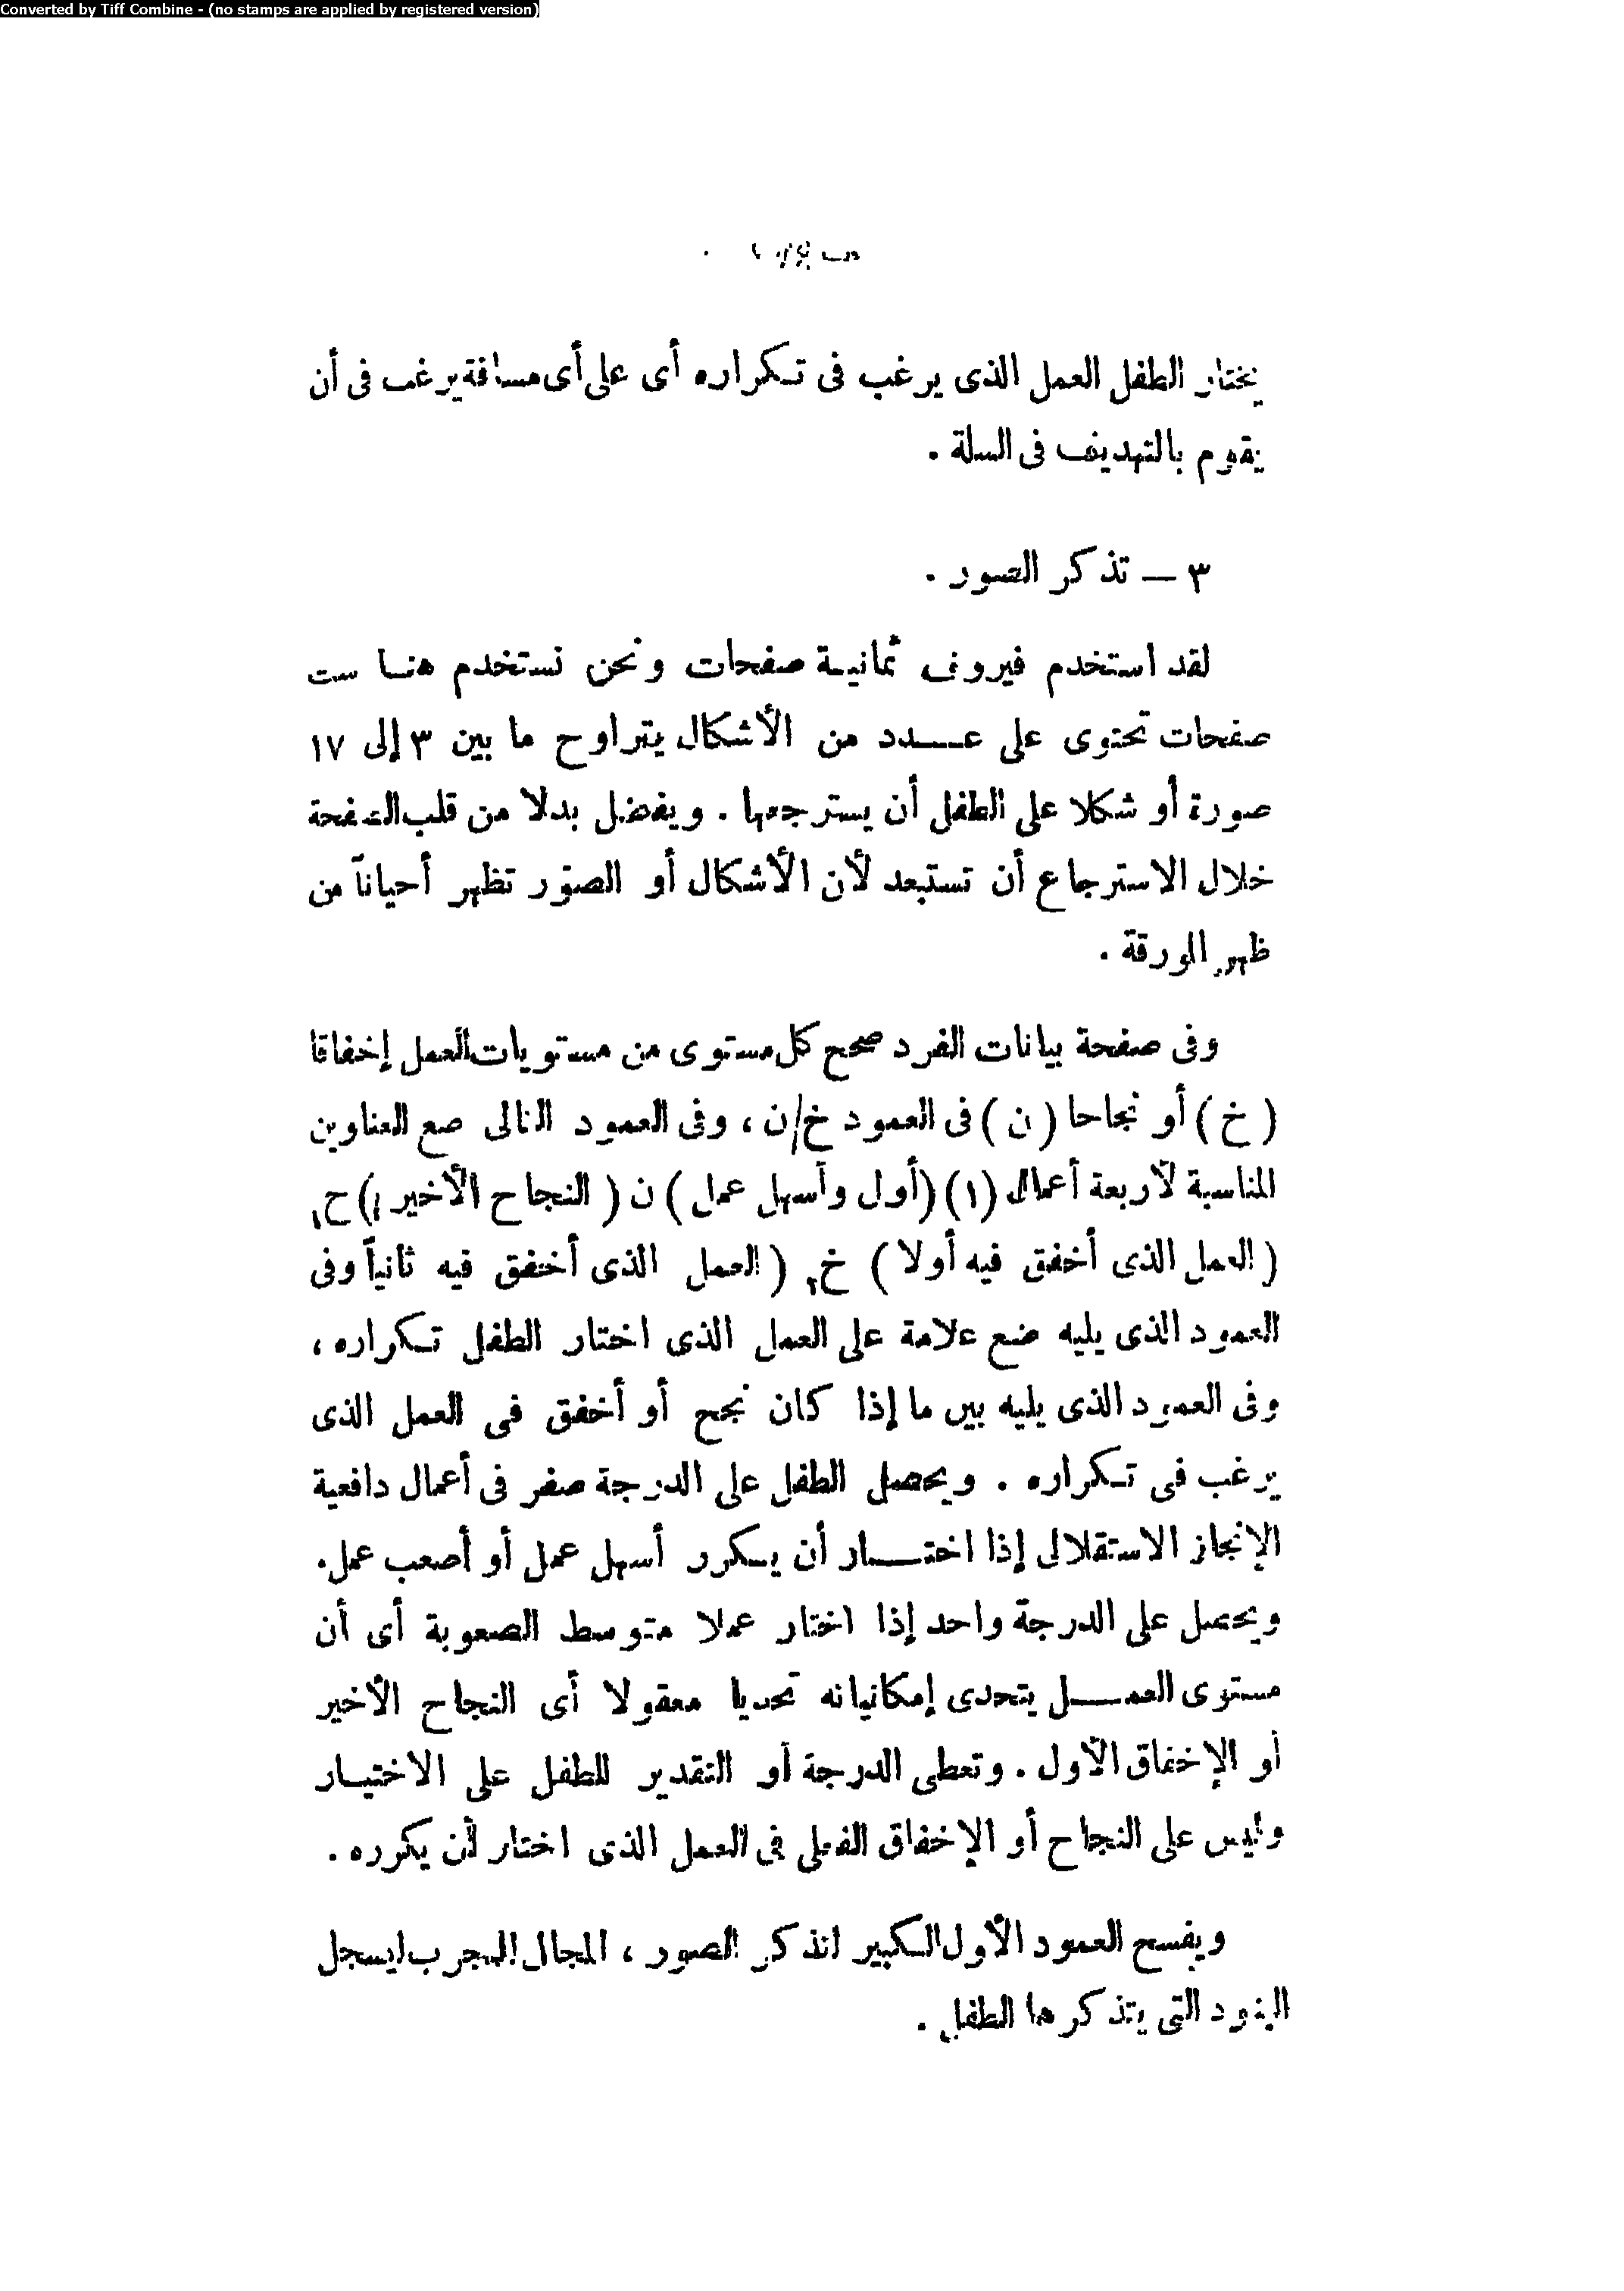 Converted by Tiff Combine - (no stamps are applied by registered version)
يختار الطفل العمل الذى يرغب فى تكراره أى على أى مسافة يرغب فى أن
يقوم بالتهديف فى السلة .
٣ — تذكر الصور .
لقد استخدم فيروف ثمانية صفحات ونحن نستخدم هنا ست
صفحات تحتوى على عدد من الأشكال يتراوح ما بين ٣ إلى ١٧
صورة أو شكلا على الطفل أن يسترجعها . ويفضل بدلا من قلب الصفحة
خلال الاسترجاع أن تستبعد لأن الأشكال أو الصور تظهر أحياناً من
ظهر الورقة .
وفى صفحة بيانات الفرد صحح كل مستوى من مستويات العمل إخفاقا
( خ ) أو نجاحا ( ن ) فى العمود خ/ن ، وفى العمود التالى ضع العناوين
المناسبة لأربعة أعمال (١) (أول وأسهل عمل ) ن ( النجاح الأخير ) ح١
( العمل الذى أخفق فيه أولا ) خ٢ ( العمل الذى أخفق فيه ثانياً وفى
العمود الذى يليه ضع علامة على العمل الذى اختار الطفل تكراره ،
وفى العمود الذى يليه بين ما إذا كان نجح أو أخفق فى العمل الذى
يرغب فى تكراره . ويحصل الطفل على الدرجة صفر فى أعمال دافعية
الإنجاز الاستقلالى إذا اختار أن يكرر أسهل عمل أو أصعب عمل.
ويحصل على الدرجة واحد إذا اختار عملا متوسط الصعوبة أى أن
مستوى العمل يتحدى إمكانياته تحديا معقولا أى النجاح الأخير
أو الإخفاق الأول . وتعطى الدرجة أو التقدير للطفل على الاختيار
وليس على النجاح أو الإخفاق الفعلى فى العمل الذى اختار لأن يكرره .
ويفسح العمود الأول الكبير لتذكر الصور ، المجال للمجرب ليسجل
البنود التى يتذكرها الطفل .